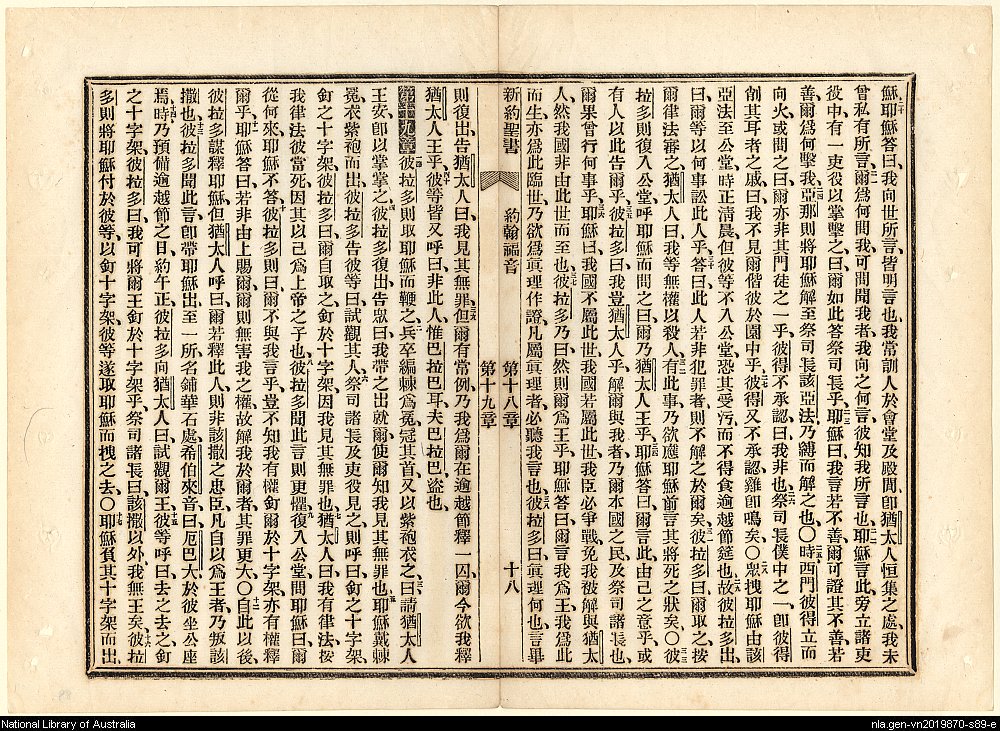 穌耶穌答曰、我向世所言、皆明言也、我常訓人於會堂及殿間、卽猶太人恒集之處、我未
曾私有所言、爾爲何問我、可問聞我者、我向之何言、彼知我所言也、耶穌言此、旁立諸吏
役中、有一吏役以掌擊之曰、爾如此答祭司長乎、耶穌曰、我言若不善、爾可證其不善、若
善、爾爲何擊我、亞那則將耶穌解至祭司長該亞法、乃縛而解之也、〇時西門彼得立而
向火、或問之曰、爾亦非其門徒之一乎、彼得不承認曰、我非也、祭司長僕中之一、卽彼得
削其耳者之戚曰、我不見爾偕彼於園中乎、彼得又不承認、雞卽鳴矣、〇眾拽耶穌由該
亞法至公堂、時正清晨、但彼等不入公堂、恐其受污而不得食逾越節筵也、故彼拉多出、
曰、爾等以何事訟此人乎、答曰、此人若非犯罪者、則不解之於爾矣、彼拉多曰、爾取之、按
爾律法審之、猶太人曰、我等無權以殺人、有此事乃欲應耶穌前言其將死之狀矣、〇彼
拉多則復入公堂、呼耶穌而問之曰、爾乃猶太人王乎、耶穌答曰、爾言此、由己之意乎、或
有人以此告爾乎、彼拉多曰、我豈猶太人乎、解爾與我者、乃爾本國之民及祭司諸長也、
爾果曾行何事乎、耶穌曰、我國不屬此世、我國若屬此世、我臣必爭戰、免我被解與猶太
人、然我國非由此世而至也、彼拉多乃曰、然則爾爲王乎、耶穌答曰、爾言我爲王、我爲此
而生、亦爲此臨世、乃欲爲眞理作證、凡屬眞理者、必聽我言也、彼拉多曰、眞理何也、言畢
新約聖書 約翰福音 第十八章 十八
第十九章
則復出、告猶太人曰、我見其無罪、但爾有常例、乃我爲爾在逾越節釋一囚、爾今欲我釋
猶太人王乎、彼等皆又呼曰、非此人、惟巴拉巴耳、夫巴拉巴盜也、
第十九章 彼拉多則取耶穌而鞭之、兵卒編棘爲冕冠其首、又以紫袍衣之、曰、請猶太人
王安、卽以掌掌之、彼拉多復出、告眾曰、我帶之出就爾、使爾知我見其無罪也、耶穌戴棘
冕衣紫袍而出、彼拉多告彼等曰、試觀其人、祭司諸長及吏役見之、則呼曰、釘之十字架、
釘之十字架、彼拉多曰、爾自取之、釘於十字架、因我見其無罪也、猶太人曰、我有律法、按
我律法、彼當死、因其以己爲上帝之子也、彼拉多聞此言、則更懼、復入公堂、問耶穌曰、爾
從何來、耶穌不答、彼拉多則曰、爾不與我言乎、豈不知我有權釘爾於十字架、亦有權釋
爾乎、耶穌答曰、若非由上賜爾、爾則無害我之權、故解我於爾者、其罪更大、〇自此以後、
彼拉多謀釋耶穌、但猶太人呼曰、爾若釋此人、則非該撒之忠臣、凡自以爲王者、乃叛該
撒也、彼拉多聞此言、卽帶耶穌出、至一所、名鋪華石處、希伯來音曰、厄巴大、於彼坐公座
焉、時乃預備逾越節之日、約午正、彼拉多向猶太人曰、試觀爾王、彼等呼曰、去之、去之、釘
之十字架、彼拉多曰、我可將爾王釘於十字架乎、祭司諸長曰、該撒以外、我無王矣、彼拉
多則將耶穌付於彼等、以釘十字架、彼等遂取耶穌而拽之去、〇耶穌負其十字架而出、
National Library of Australia
nla.gen-vn2019870-s89-e